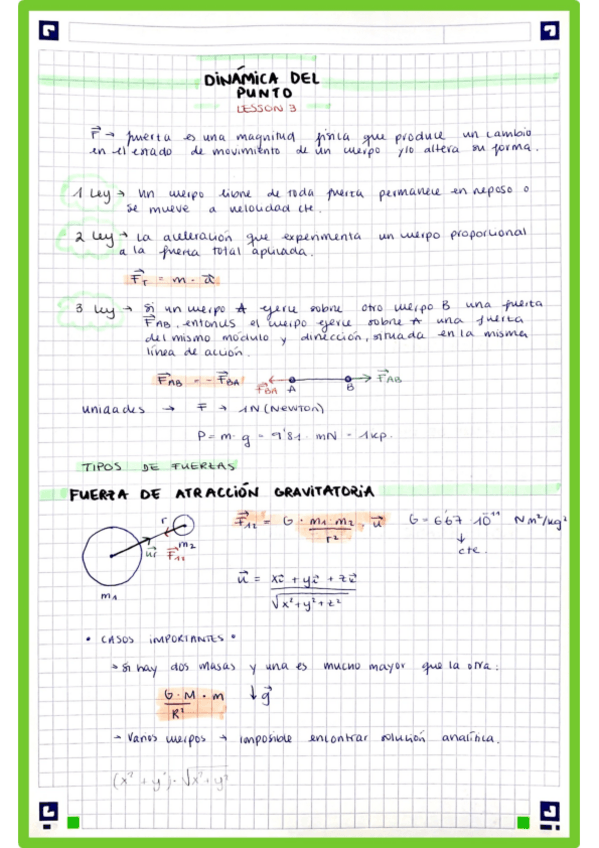 DINÁMICA DEL
PUNTO
LESSON 3
r⃗ → fuerta es una magnitud física que produce un cambio
en el estado de movimiento de un cuerpo y/o altera su forma.
1 Ley → Un cuerpo libre de toda fuerta permanece en reposo o
se mueve a velocidad cte.
2 Ley → La aceleración que experimenta un cuerpo proporcional
a la fuerta total aplicada.
F⃗T = m · a⃗
3 Ley → Si un cuerpo A ejerce sobre otro cuerpo B una fuerta
F⃗AB, entonces el cuerpo ejerce sobre A una fuerta
del mismo módulo y dirección, situada en la misma
línea de acción.
F⃗AB = - F⃗BA F⃗BA A B F⃗AB
unidades → F → 1N (NEWTON)
P = m · g = 9'81 · mN - 1kp.
TIPOS DE FUERZAS
FUERZA DE ATRACCIÓN GRAVITATORIA
r m2 u⃗r F⃗12 m1
F⃗12 = G · m1 · m2 / r² · u⃗ G = 6'67 10⁻¹¹ N m²/kg²
↓
cte.
u⃗ = xî + yî + zî / √x² + y² + z²
• CASOS IMPORTANTES •
→ Si hay dos masas y una es mucho mayor que la otra:
G · M / R² · m ↓ g⃗
→ Varios cuerpos → imposible encontrar solución analítica.
(x² + y²) · √x² + y²